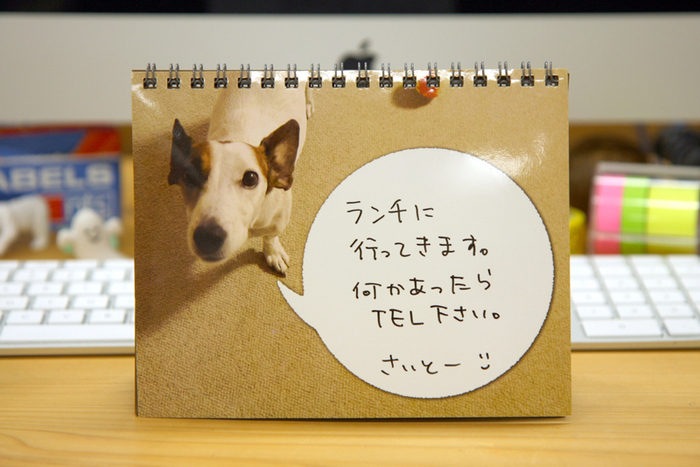 ランチに
行ってきます。
何かあったら
TEL下さい。
さいとー
ABELS